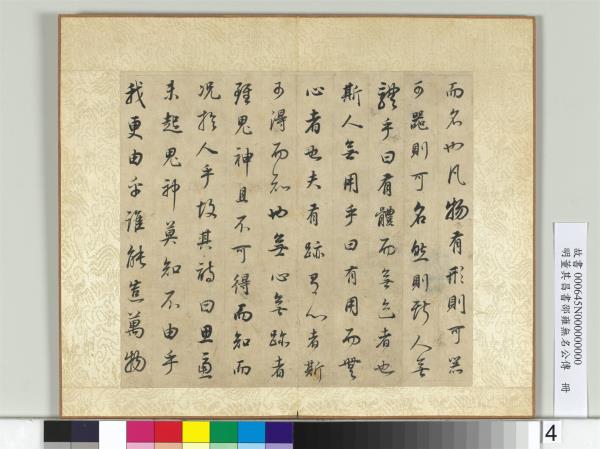 而名也凡物有形則可器
可器則可名然則斯人無
體乎曰有體而無迹者也
斯人無用乎曰有用而無
心者也夫有跡有心者斯
可得而知也無心無跡者
雖鬼神且不可得而知而
況於人乎故其詩曰思慮
未起鬼神莫知不由乎
我更由乎誰能造萬物
故書000645N000000000
明董其昌書邵雍無名公傳 冊
4